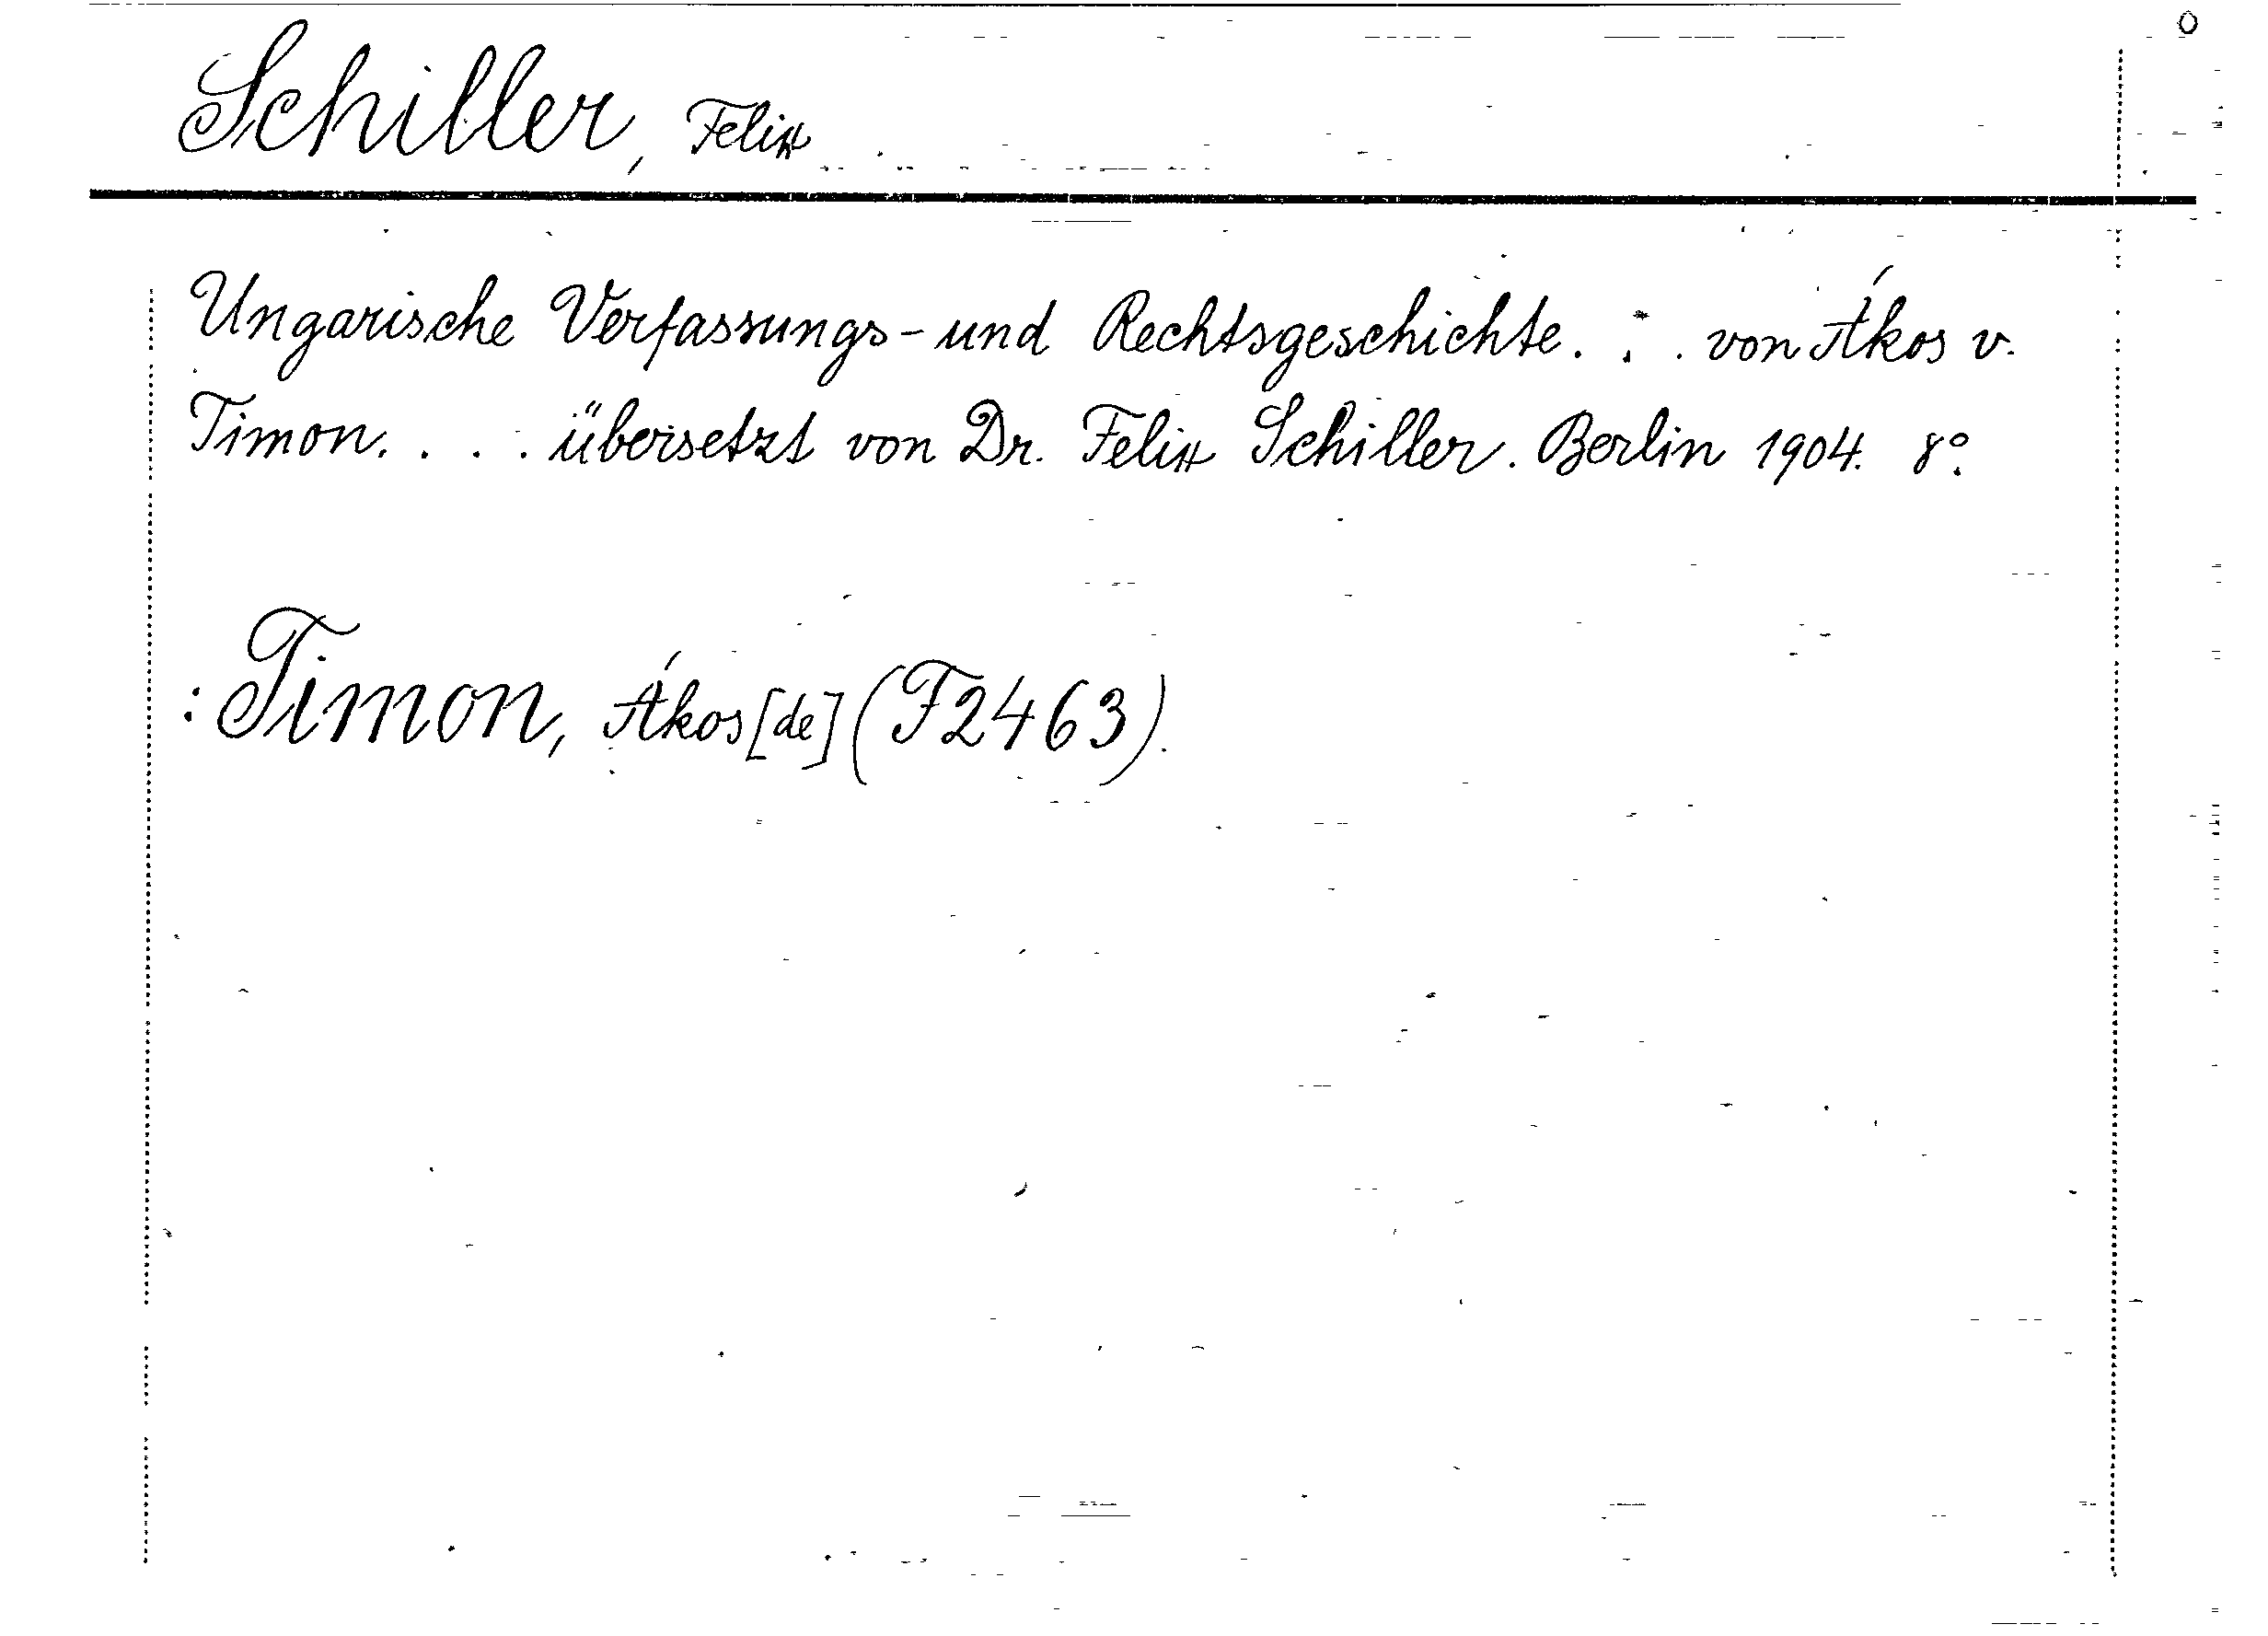 Schiller, Felix
Ungarische Verfassungs- und Rechtsgeschichte. . . von Ákos v.
Timon. . . . übersetzt von Dr. Felix Schiller. Berlin 1904. 8°.
: Timon, Ákos [de] (F2463).